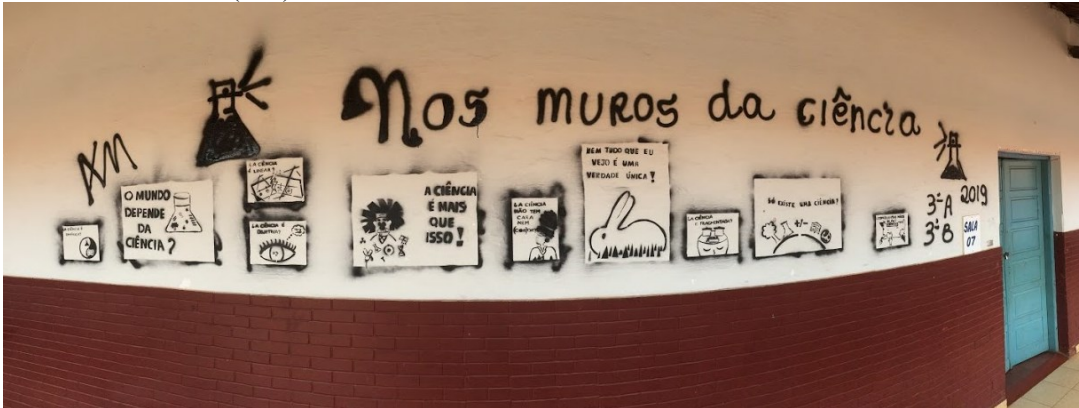 Nos MUROS da ciência
AM
O MUNDO
DEPENDE
DA
CIÊNCIA?
LA CIÊNCIA
É LINEAR?
LA CIÊNCIA É
A CIÊNCIA
É MAIS
QUE
ISSO!
LA CIÊNCIA
NÃO TEM
CARA
NEM
NEM TUDO QUE EU
VEJO É UMA
VERDADE ÚNICA!
LA CIÊNCIA
É FRAGMENTADA?
SÓ EXISTE UMA CIÊNCIA?
3ºA 2019
3ºB
SALA
07